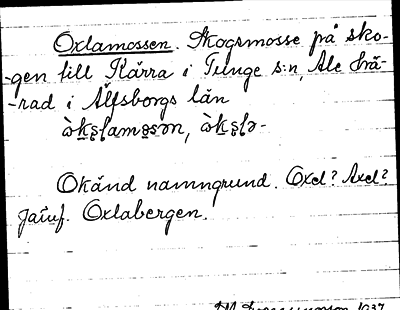 Oxlamossen. Skogsmosse på sko-
-gen till Kärra i Tunge s:n, Ale hä-
-rad i Älfsborgs län
Okänd namngrund. Oxel? Axel?
Jämf. Oxlabergen.
1937